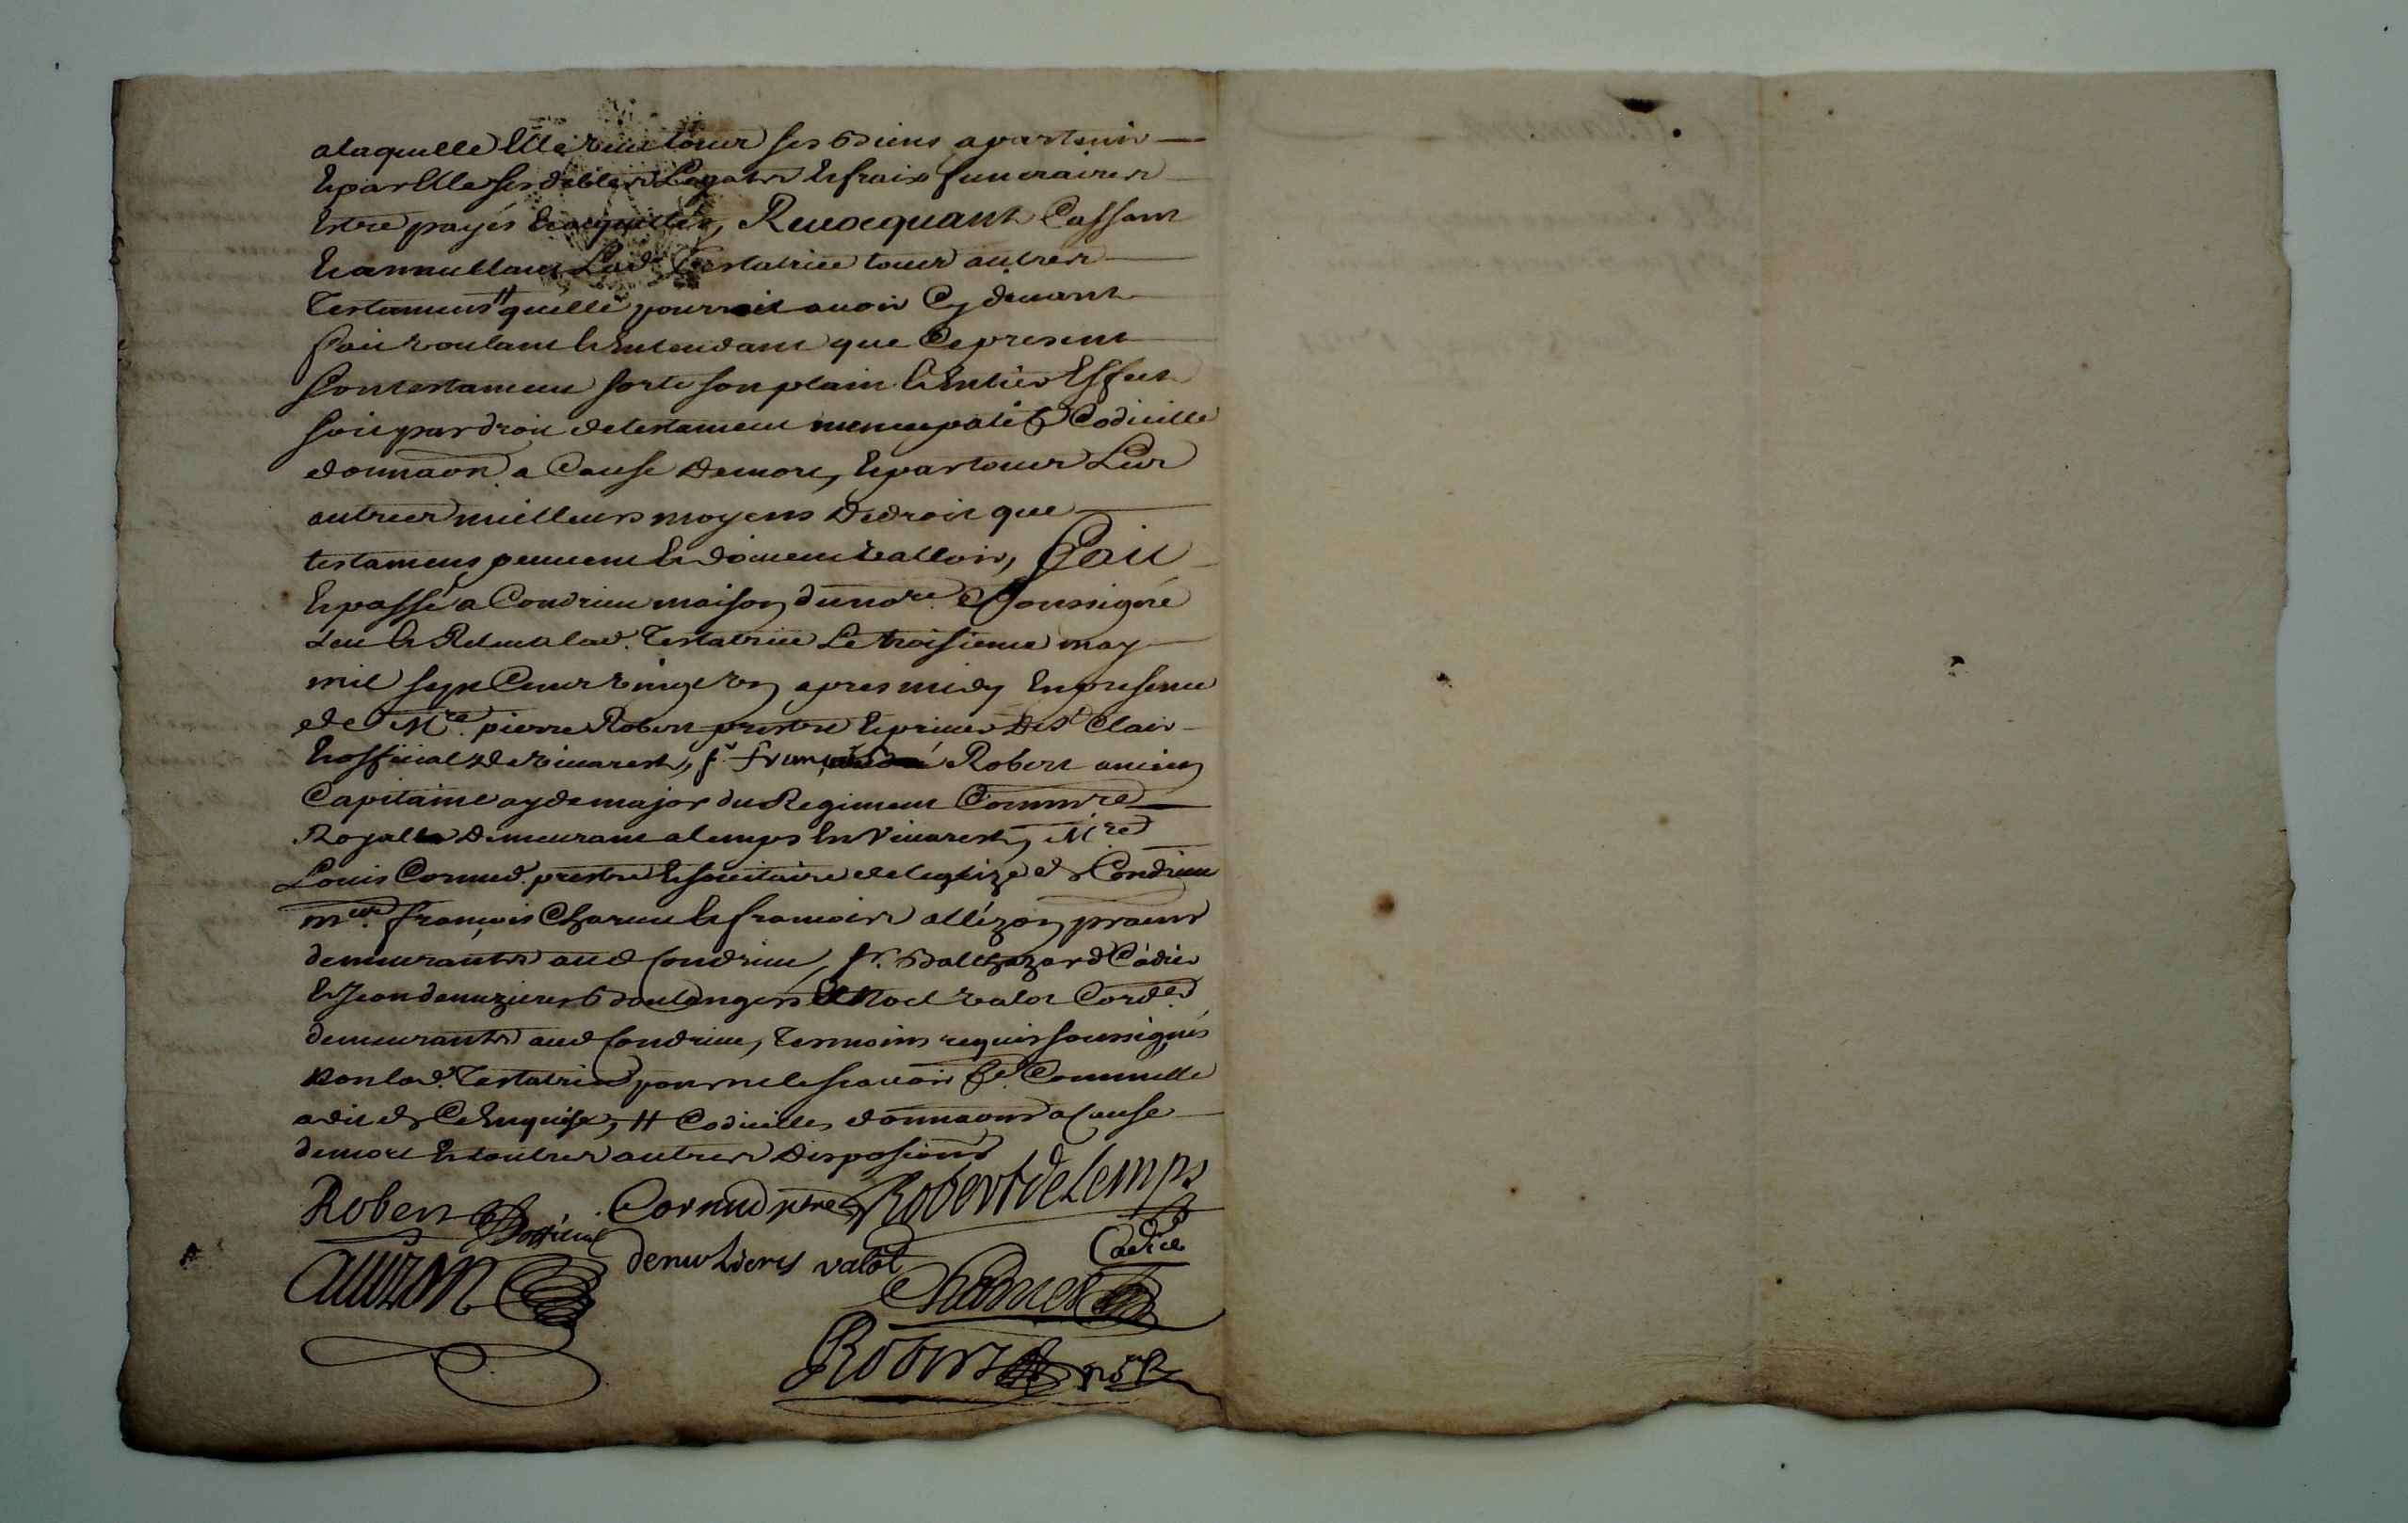 alaquelle Elle veut tous ses biens apartenir
Et par Elle ses debtes Legats Et fraix funeraires
Estre payés Et acquittés, Revocquant Cassant
Et annullant Lad. Testatrice tous autres
Testamens # quelle pourroit avoir Cy devant
fait voulant Et Entendant que Ce present
Son testament sorte son plain Et Entier Effect
soit par droit de testament nuncupatif Codicille
donnaon. a Cause de mort, Et par tous Les
autres meilleurs moyens de droit que
testamens peuvent Et doivent valloir, fait
Et passé a Condrieu maison du nore. Soussigné
Leu Et Releu a lad. Testatrice Le troisieme may
mil sept Cents vingt un apres midy En presence
de Mre. pierre Robert prestre Et prieur de St Clair
Et official de vivarest, sr. françois Robert ancien
Capitaine ayde major du Regiment Commre
Royalle Demeurant a lemps En Vivarest, Mre
Louis Cornud. prestre Et societaire de leglize de Condrieu
mres. françois Charvet Et francois allizon praens
demeurants aud Condrieu, sr. Balthazard Cadier
Et Jean denuzieres Boulengers Et Noel valot Cordr
demeurants aud Condrieu, Tesmoins requis soussignés
non lad. Testatrice pour ne le scavoir fe. Comme Elle
a dit de Ce Enquise, # Codicilles donnaons a Cause
de mort Et toutes autres disposions
Robert official Cornud ptre Robert de Lemps
denuzieres valot Cadier
allizon Charvet
Robert nore R